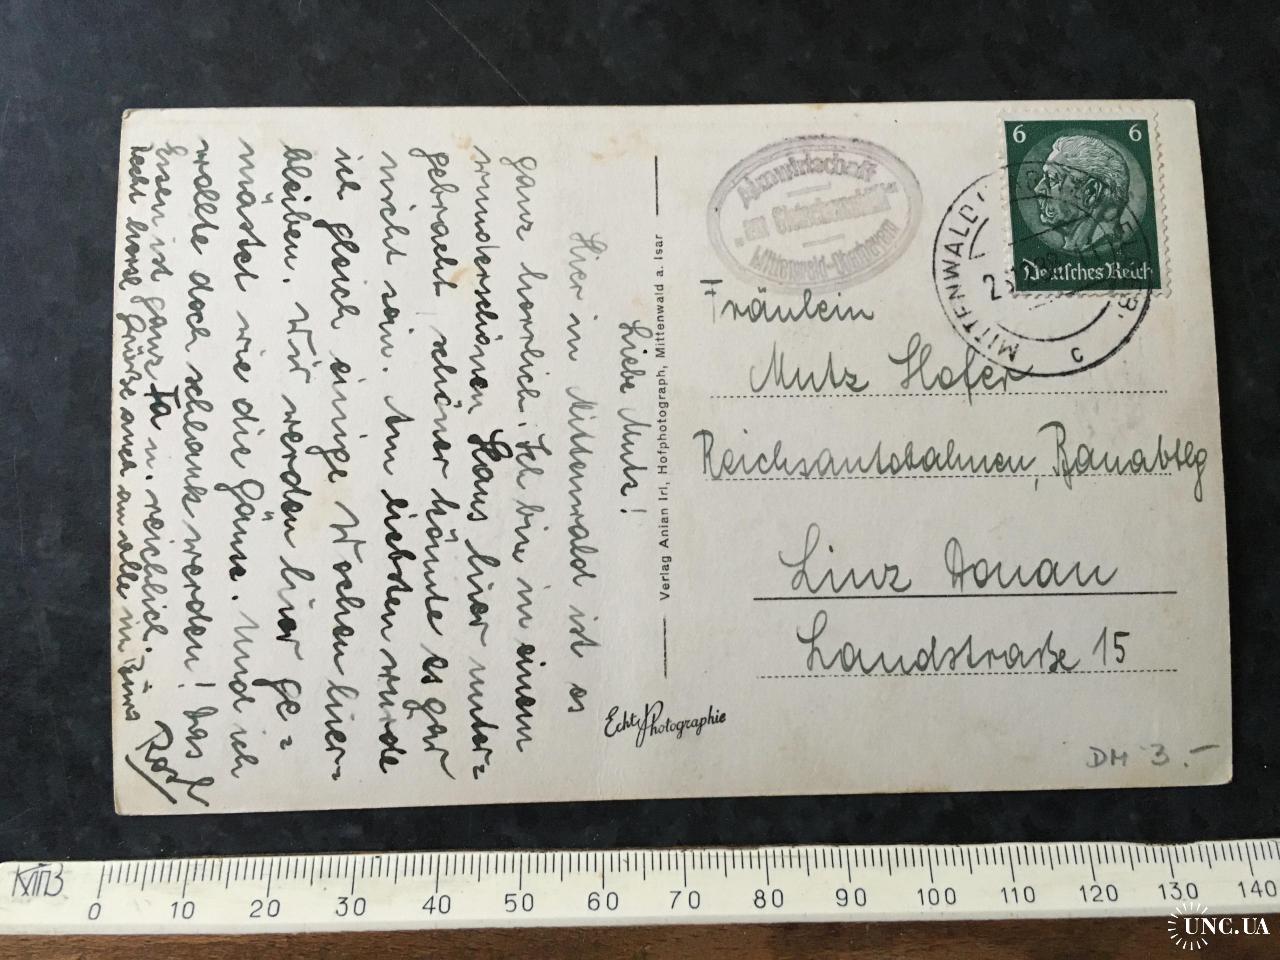 Liebe Mutz!
Hier in Mittenwald ist es
ganz herrlich. Ich bin in einem
wunderschönen Haus hier unter=
gebracht, schöner könnte es gar
nicht sein. Am liebsten würde
ich gleich einige Wochen hier=
bleiben. Wir werden hier ge=
mästet wie die Gänse. Und ich
wollte doch schlank werden! Das
Essen ist ganz Ia u. reichlich.
Recht herzl. Grüße auch an alle im Büro
Rosl
Verlag Anian Irl, Hofphotograph, Mittenwald a. Isar
Echte Photographie
Almwirtschaft
Mittenwald-Oberbayern
6 6
Deutsches Reich
MITTENWALD
c
Fräulein
Mutz Hofer
Reichsautobahnen, Bauabtlg
Linz Donau
Landstraße 15
DM 3.-
КПВ
0 10 20 30 40 50 60 70 80 90 100 110 120 130 140
UNC.UA